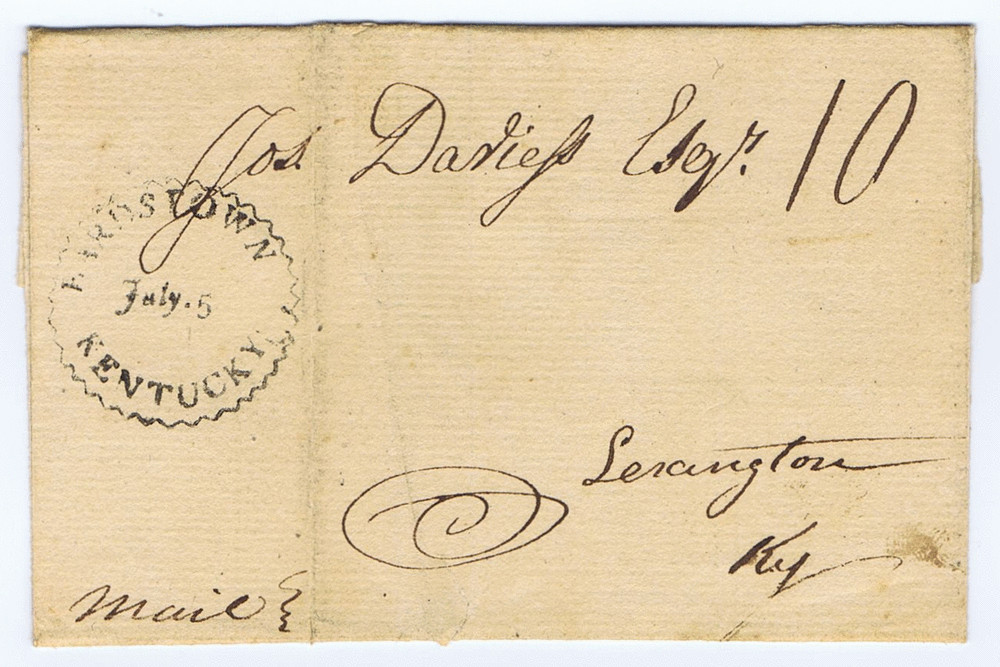 Jos. Daviess Esqr. 10
BARDSTOWN
July. 5
KENTUCKY.
Lexington
Ky
Mail